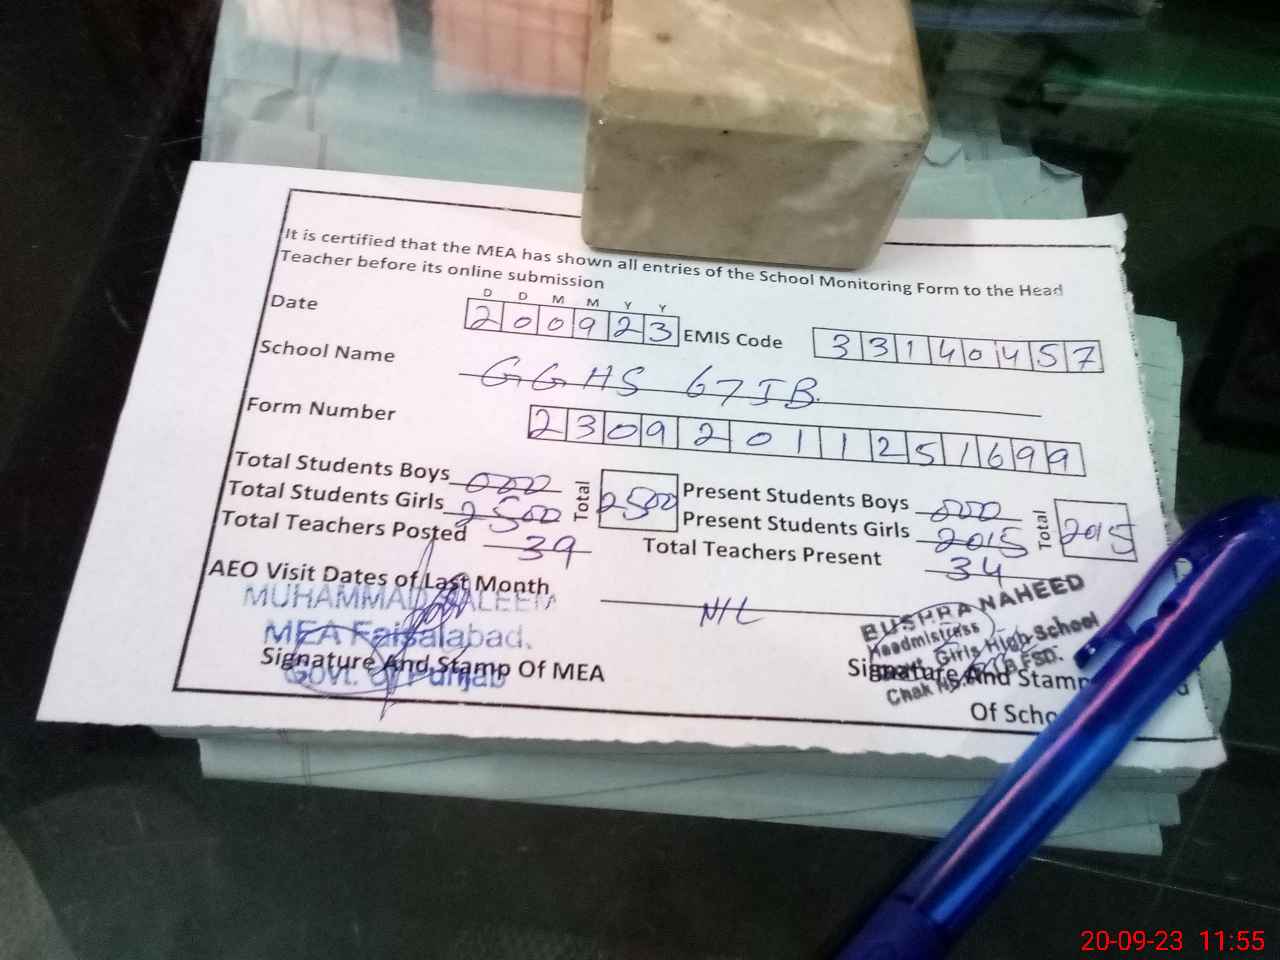 It is certified that the MEA has shown all entries of the School Monitoring Form to the Head
Teacher before its online submission
D D M M Y Y
Date 2 0 0 9 2 3 EMIS Code 3 3 1 4 0 4 5 7
School Name GGHS 67 JB.
Form Number 2 3 0 9 2 0 1 1 2 5 1 6 9 9
Total Students Boys 000 Total 2500 Present Students Boys 000 Total 2015
Total Students Girls 2500 Present Students Girls 2015
Total Teachers Posted 39 Total Teachers Present 34
AEO Visit Dates of Last Month NIL
MUHAMMAD SALEEM
MEA Faisalabad.
Govt. of Punjab
Signature And Stamp Of MEA
BUSHRA NAHEED
Headmistress
Girls High School
Chak No. JB FSD.
Signature And Stamp
Of Scho
20-09-23 11:55